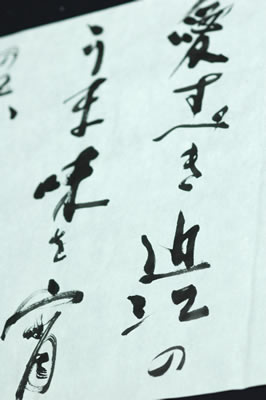 愛すべき近江の
うま味を宵